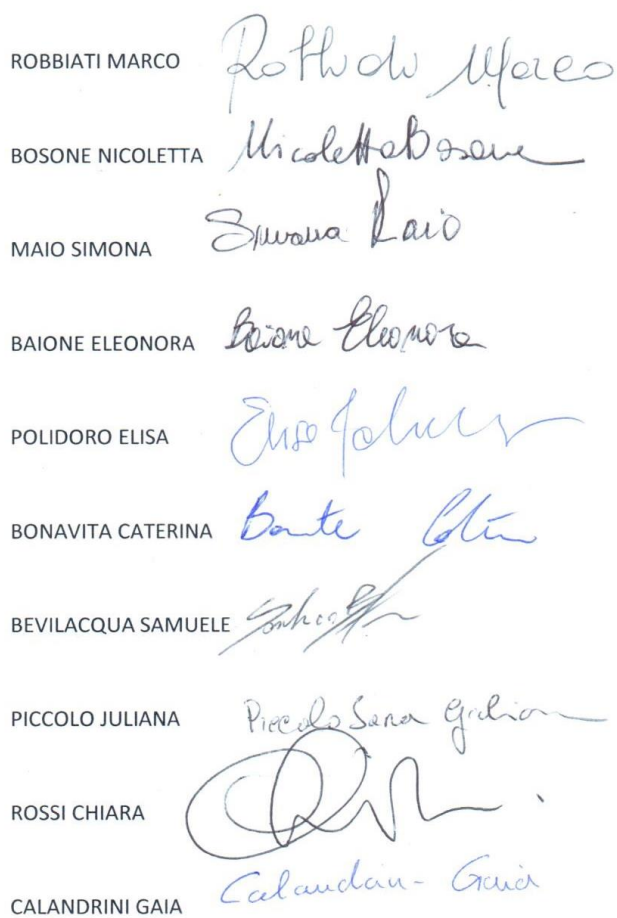 ROBBIATI MARCO Marco
BOSONE NICOLETTA Nicoletta Bosone
MAIO SIMONA Simona Maio
BAIONE ELEONORA Baione Eleonora
POLIDORO ELISA Elisa
BONAVITA CATERINA
BEVILACQUA SAMUELE
PICCOLO JULIANA Piccolo Sara
ROSSI CHIARA
CALANDRINI GAIA Calandrini Gaia